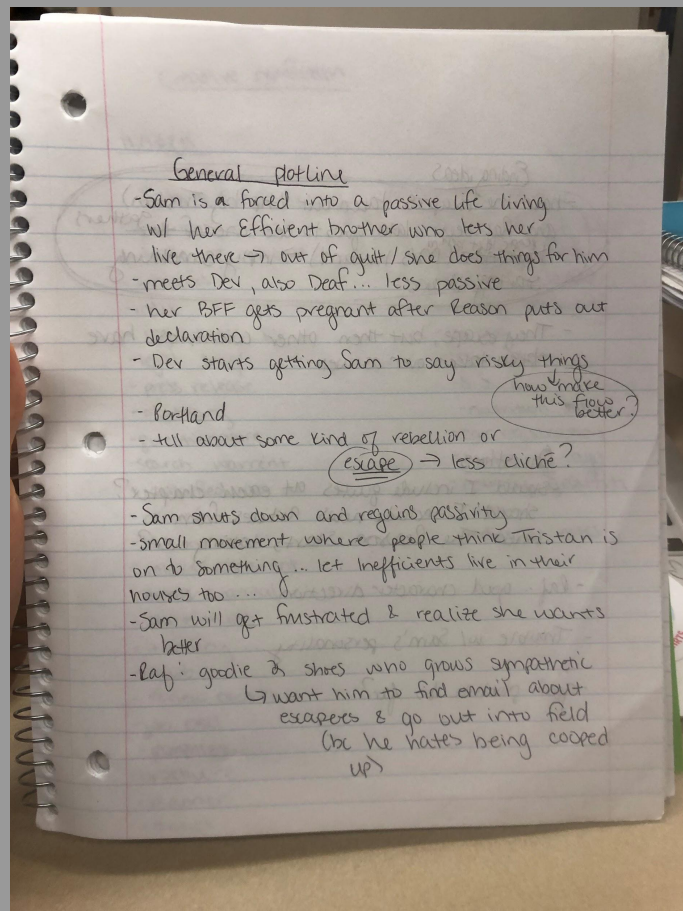 General plotline
- Sam is a forced into a passive life living
w/ her Efficient brother who lets her
live there → out of guilt / she does things for him
- meets Dev, also Deaf... less passive
- her BFF gets pregnant after Reason puts out
declaration
- Dev starts getting Sam to say risky things
how make
this flow
better?
- Portland
- tell about some kind of rebellion or
escape → less cliché?
- Sam shuts down and regains passivity
- small movement where people think Tristan is
on to something... let Inefficients live in their
houses too ...
- Sam will get frustrated & realize she wants
better
- Raf: goodie 2 shoes who grows sympathetic
↳ want him to find email about
escapees & go out into field
(bc he hates being cooped
up)